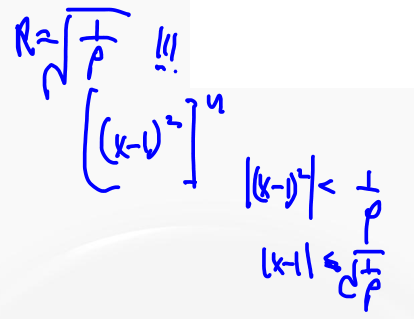 R = √(1/ρ) !!!
[(x-1)²]ⁿ
|(x-1)²| < 1/ρ
|x-1| < √(1/ρ)